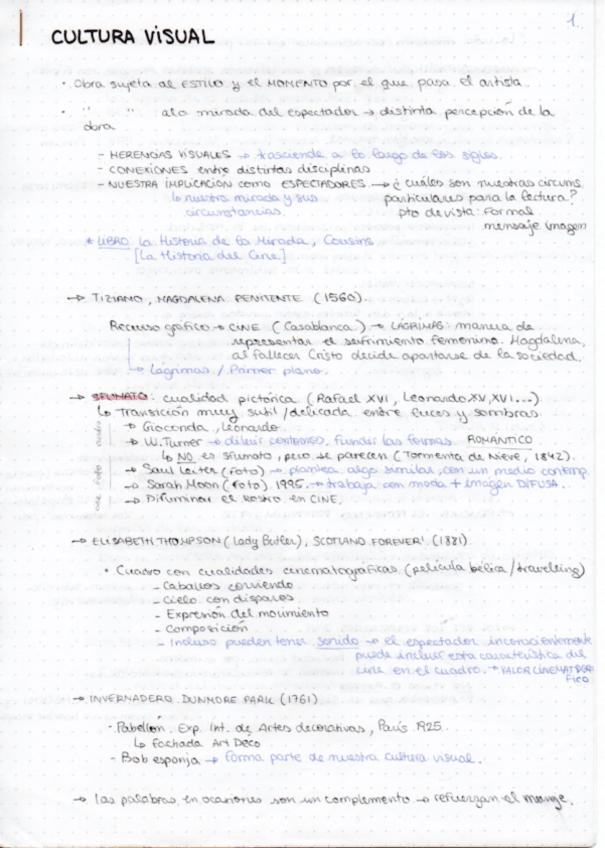 1.
CULTURA VISUAL
· Obra sujeta al ESTILO y el MOMENTO por el que pasa el artista.
· " " a la mirada del espectador → distinta percepción de la
obra
- HERENCIAS VISUALES → trasciende a lo largo de los siglos.
- CONEXIONES entre distintas disciplinas
- NUESTRA IMPLICACIÓN como ESPECTADORES → ¿cuáles son nuestras circuns.
↳ nuestra mirada y sus particulares para la lectura?
circunstancias. pto de vista: formal
mensaje imagen
* LIBRO: La Historia de la Mirada, Cousins
[La Historia del Cine]
→ TIZIANO, MAGDALENA PENITENTE (1560).
Recurso gráfico → CINE (Casablanca) → LÁGRIMAS: manera de
representar el sufrimiento femenino. Magdalena,
al fallecer Cristo decide apartarse de la sociedad.
↳ Lágrimas / Primer plano.
→ SFUMATO: cualidad pictórica (Rafael XVI, Leonardo XV, XVI...)
↳ Transición muy sutil/delicada entre luces y sombras.
→ Gioconda, Leonardo.
→ W. Turner → diluir contornos, fundir las formas ROMÁNTICO
↳ NO es sfumato, pero se parecen (Tormenta de Nieve, 1842).
→ Saul Leiter (foto) → plantea algo similar, con un medio contemp.
→ Sarah Moon (foto) 1995. → trabaja con moda + imagen DIFUSA.
→ Difuminar el rostro en CINE.
→ ELISABETH THOMPSON (Lady Butler), SCOTLAND FOREVER! (1821)
· Cuadro con cualidades cinematográficas (película bélica/travelling)
- Caballos corriendo
- Cielo con disparos
- Expresión del movimiento
- Composición
- Incluso pueden tener sonido → el espectador inconscientemente
puede incluir esta característica del
cine en el cuadro. → VALOR CINEMATOGRÁ
FICO
→ INVERNADERO DUNMORE PARK (1761)
- Pabellón. Exp. Int. de Artes decorativas, París 1925.
↳ fachada Art Decó
- Bob esponja → forma parte de nuestra cultura visual.
→ Las palabras, en ocasiones son un complemento → refuerzan el